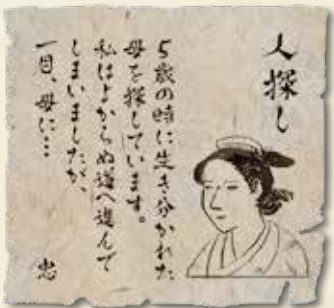 人探し
5歳の時に生き分かれた
母を探しています。
私はよからぬ道へ進んで
しまいましたが、
一目、母に…
忠